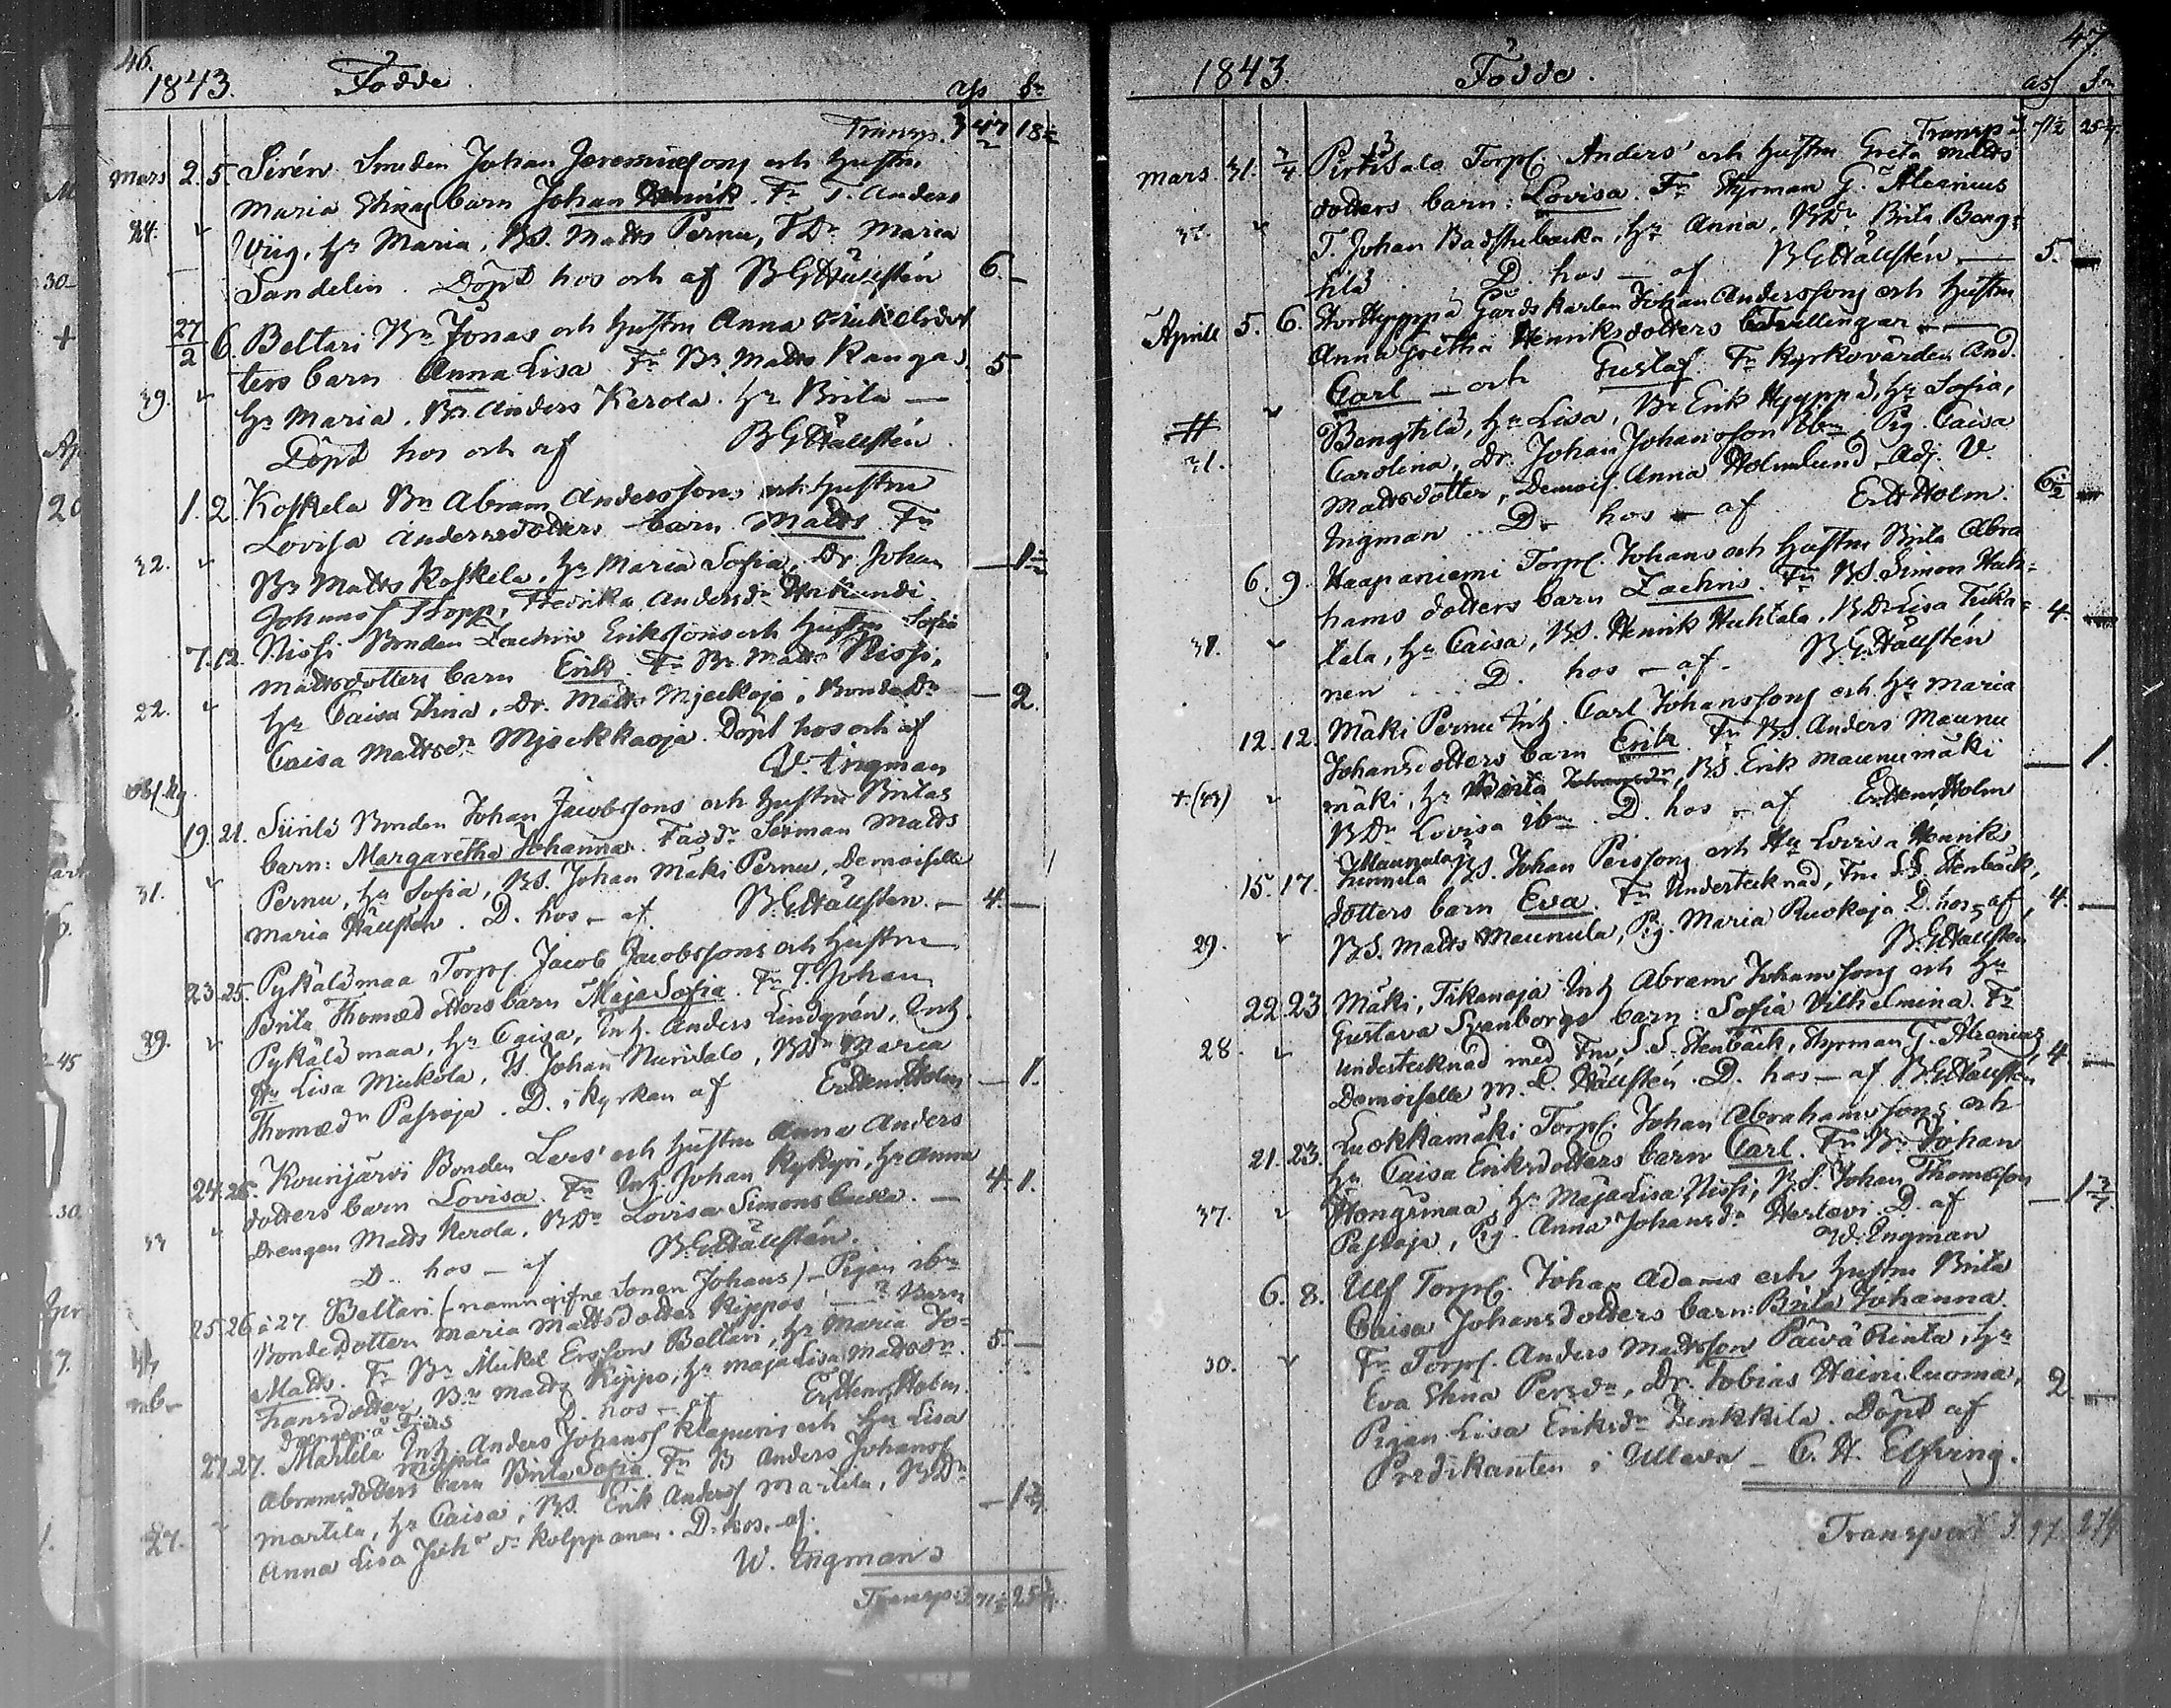 46.
1843. Födde.
Transp. 3 47 18
Mars 2. 5. Sirén Smeden Johan Jeremiæssons och Hustru
Maria Stinas barn Johan Henrik. Fr T. Anders
24. Wiig, Hr Maria, BS. Matts Pernu, TDr Maria
Sandelin. Döpt hos och af BGHällstén 6. –
27/2 6. Beltari Bn Jonas och Hustru Anna Mickelsdot
ters barn Anna Lisa. Fr Bn Matts Kangas, 5
39. Hr Maria, Bn Anders Kerola. Hr Brita –
Döpt hos och af BGHällstén
1. 2. Koskela Bn Abram Anderssons och Hustru
Lovisa Andersdotters barn Matts Fr
32. Bn Matts Koskela, Hr Maria Sofia, Dr. Johan
Johanss Tropp, Fredrika Andersdr
7. 12. Nissi Bonden Zachris Erikssons och Hustru Sofia
Mattsdotters barn Erik. Fr Bn Matts Nissi,
22. Hr Caisa Stina, Dr. Matts Myekoja, Bondedr – 2.
Caisa Mattsdr Mjoekkaoja. Döpt hos och af
W. Ingman
19. 21. Siirilä Bonden Johan Jacobssons och Hustru Britas
barn: Margaretha Johanna. Fadr Sexman Matts
31. Pernu, Hr Sofia, BS. Johan Mäki Pernu, Demoiselle
Maria Hällstén. D. hos – af BGHällstén. – 4. –
23. 25. Pykälämaa Torpr. Jacob Jacobssons och Hustru
Brita Thomædotters barn Maja Sofia. Fr T. Johan
39. Pykälämaa, Hr Caisa, Inh. Anders Lindgrén, Inh.
Hr Lisa Mickola, TS. Johan Nurisalo, BDr Maria
Thomædr Pasoja. D. i kyrkan af Er. Henr. Holm – 1.
24. 26. Kounjärvi Bonden Lars' och Hustru Anna Anders
dotters barn Lovisa. Fr Inh. Johan Kykyri, Hr Anna 4. 1.
33 Drengen Matts Kerola, BDr Lovisa Simonsbacka. –
D. hos – af BGHällstén.
25 26 à 27. Beltari (namngifne Sonen Johans) – Pigan ibm
Bondedotter Maria Mattsdotter Kippos – Barn
Matts. Fr Bn Mickel Ersson Beltari, Hr Maria Jo- 5. –
hansdotter, Bn Matts Kippo, Hr Maja Lisa Mattsdr.
D. hos – af Er Henr. Holm.
27. 27. Martila Inh. Anders Johanss Klapuris och Hr Lisa
Abramsdotters barn Brita Sofia. Fr B Anders Johanss
Martila, Hr Caisa, BS. Erik Anderss Martila, BDr
27. Anna Lisa Johsdr Kolppanen. D. hos – af
W. Ingman
Transp: 3 71½ 25¾
47.
1843. Födde.
Transp 3. 71½ 25¾
Mars. 31. 2/4 Pirtisalo Torpr. Anders' och Hustru Greta Matts
dotters barn: Lovisa. Fr Styrman G. Alcenius
32. T. Johan Badstubacka, Hr Anna, BDr Brita Beng-
tilä D. hos – af BGHällstén – 5.
Aprill 5. 6. StorHyyppä Gårdskarlen Johan Anderssons och Hustru
Anna Gretha Henriksdotters Tvillingar –
Carl – och Gustaf. Fr Kyrkovärden And.
Bengtilä, Hr Lisa, Bn Erik Hyyppä, Hr Sofia,
31. Carolina, Dr. Johan Johansson ibm, Pig. Caisa
Mattsdotter, Demois Anna Holmlund, Adj. W.
Ingman. D. hos – af ErHHolm. 6½
6. 9. Haapaniemi Torpr. Johans och Hustru Brita Abra
hams dotters barn Zachris. Fr BS. Simon Huh-
38. tala, Hr Caisa, BS. Henrik Huhtala, BDr Lisa Tika- 4.
nen D. hos – af BGHällstén
12. 12. Mäki Pernu Inh. Carl Johanssons och Hr Maria
Johansdotters barn Erik. Fr BS. Anders Maunu
mäki, Hr Brita, BS. Erik Maunumäki – 1.
BDr Lovisa ibm. D. hos – af Er. Henr. Holm
15. 17. Maunula BS. Johan Perssons och Hr Lovisa Henriks
dotters barn Eva. Fr Undertecknad, Fru S. S. Stenbäck,
29. BS. Matts Maunula, Pig. Maria Ruokoja D. hos – af 4. –
BGHällstén
22. 23 Mäki, Tikanoja Inh Abram Johanssons och Hr
Gustava Svanborgs barn: Sofia Vilhelmina. Fr
28. undertecknad med Fru S. S. Stenbäck, Styrman G. Alcenius, 4 –
Demoiselle M. L. Hällstén. D. hos – af BGHällstén
21. 23. Luokkamäki Torpr. Johan Abrahamssons och
Hr Caisa Eriksdotters barn Carl. Fr Bn Johan
37. Hongismaa, Hr Maja Lisa Nissi, BS. Johan Thomæson
Pasoja, Pig. Anna Johansdr Herlevi. D. af
W. Ingman
6. 8. Ulf Torpr. Johan Adams och Hustru Brita
Caisa Johansdotters barn: Brita Johanna.
30. Fr Torpr. Anders Mattsson Päivärinta, Hr
Eva Stina Persdr, Dr. Tobias Heiniluoma, 2 –
Pigan Lisa Eriksdr Jinkkilä. Döpt af
Predikanten i Ullava – C. H. Elfving.
Transport 3. 97. 27¾